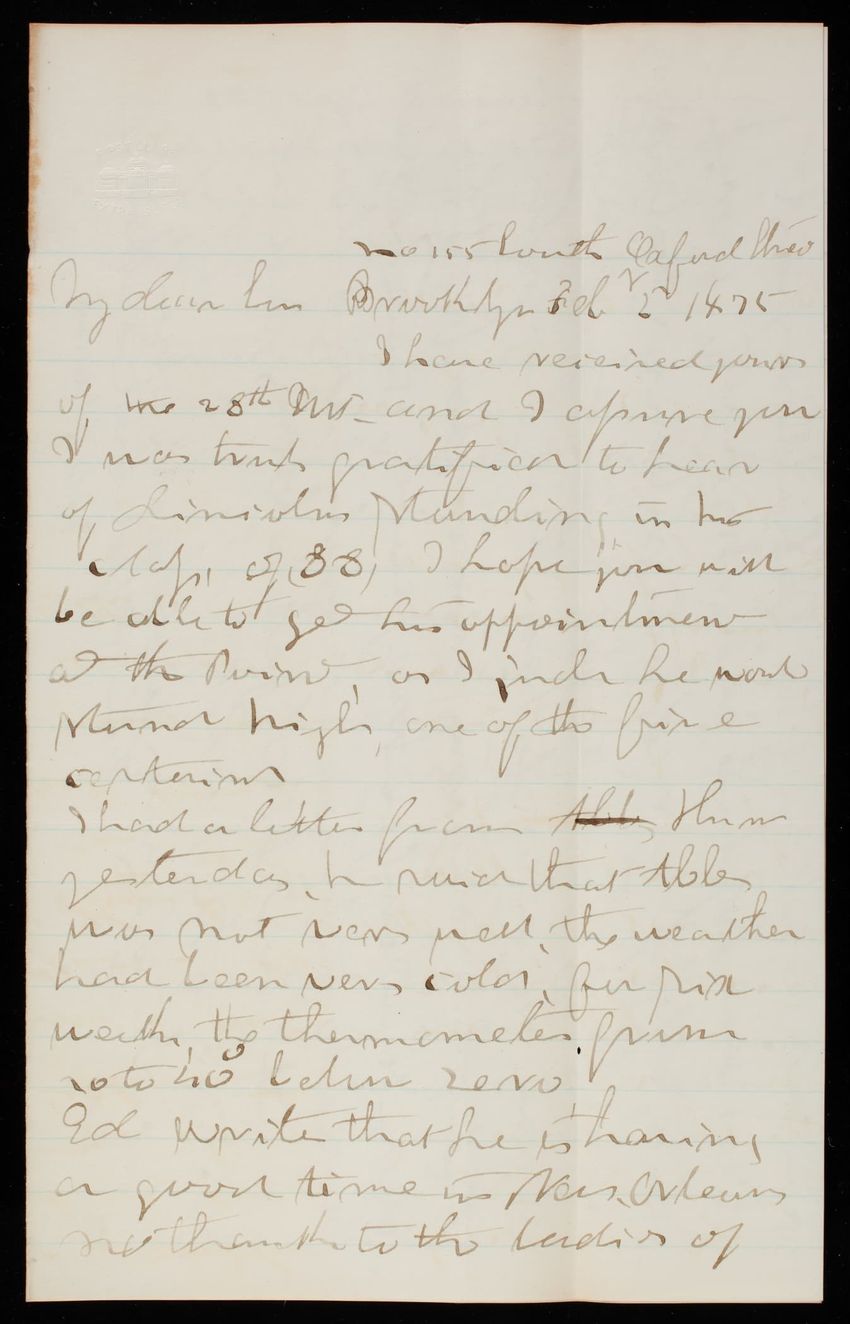 No 155 South Oxford Street
My dear Son Brooklyn Feb 2nd 1875
I have received yours
of the 28th Inst. and I assure you
I was truly gratified to hear
of Lincolns standing in his
class, of 88, I hope you will
be able to get his appointment
at the Point, as I judge he would
stand high, one of the five
certain
I had a letter from Abby
yesterday, he said that Abby
was not very well, the weather
had been very cold, for six
weeks, the thermometer from
to 40° below zero
Ed writes that he is having
a good time in New Orleans
no thanks to the ladies of